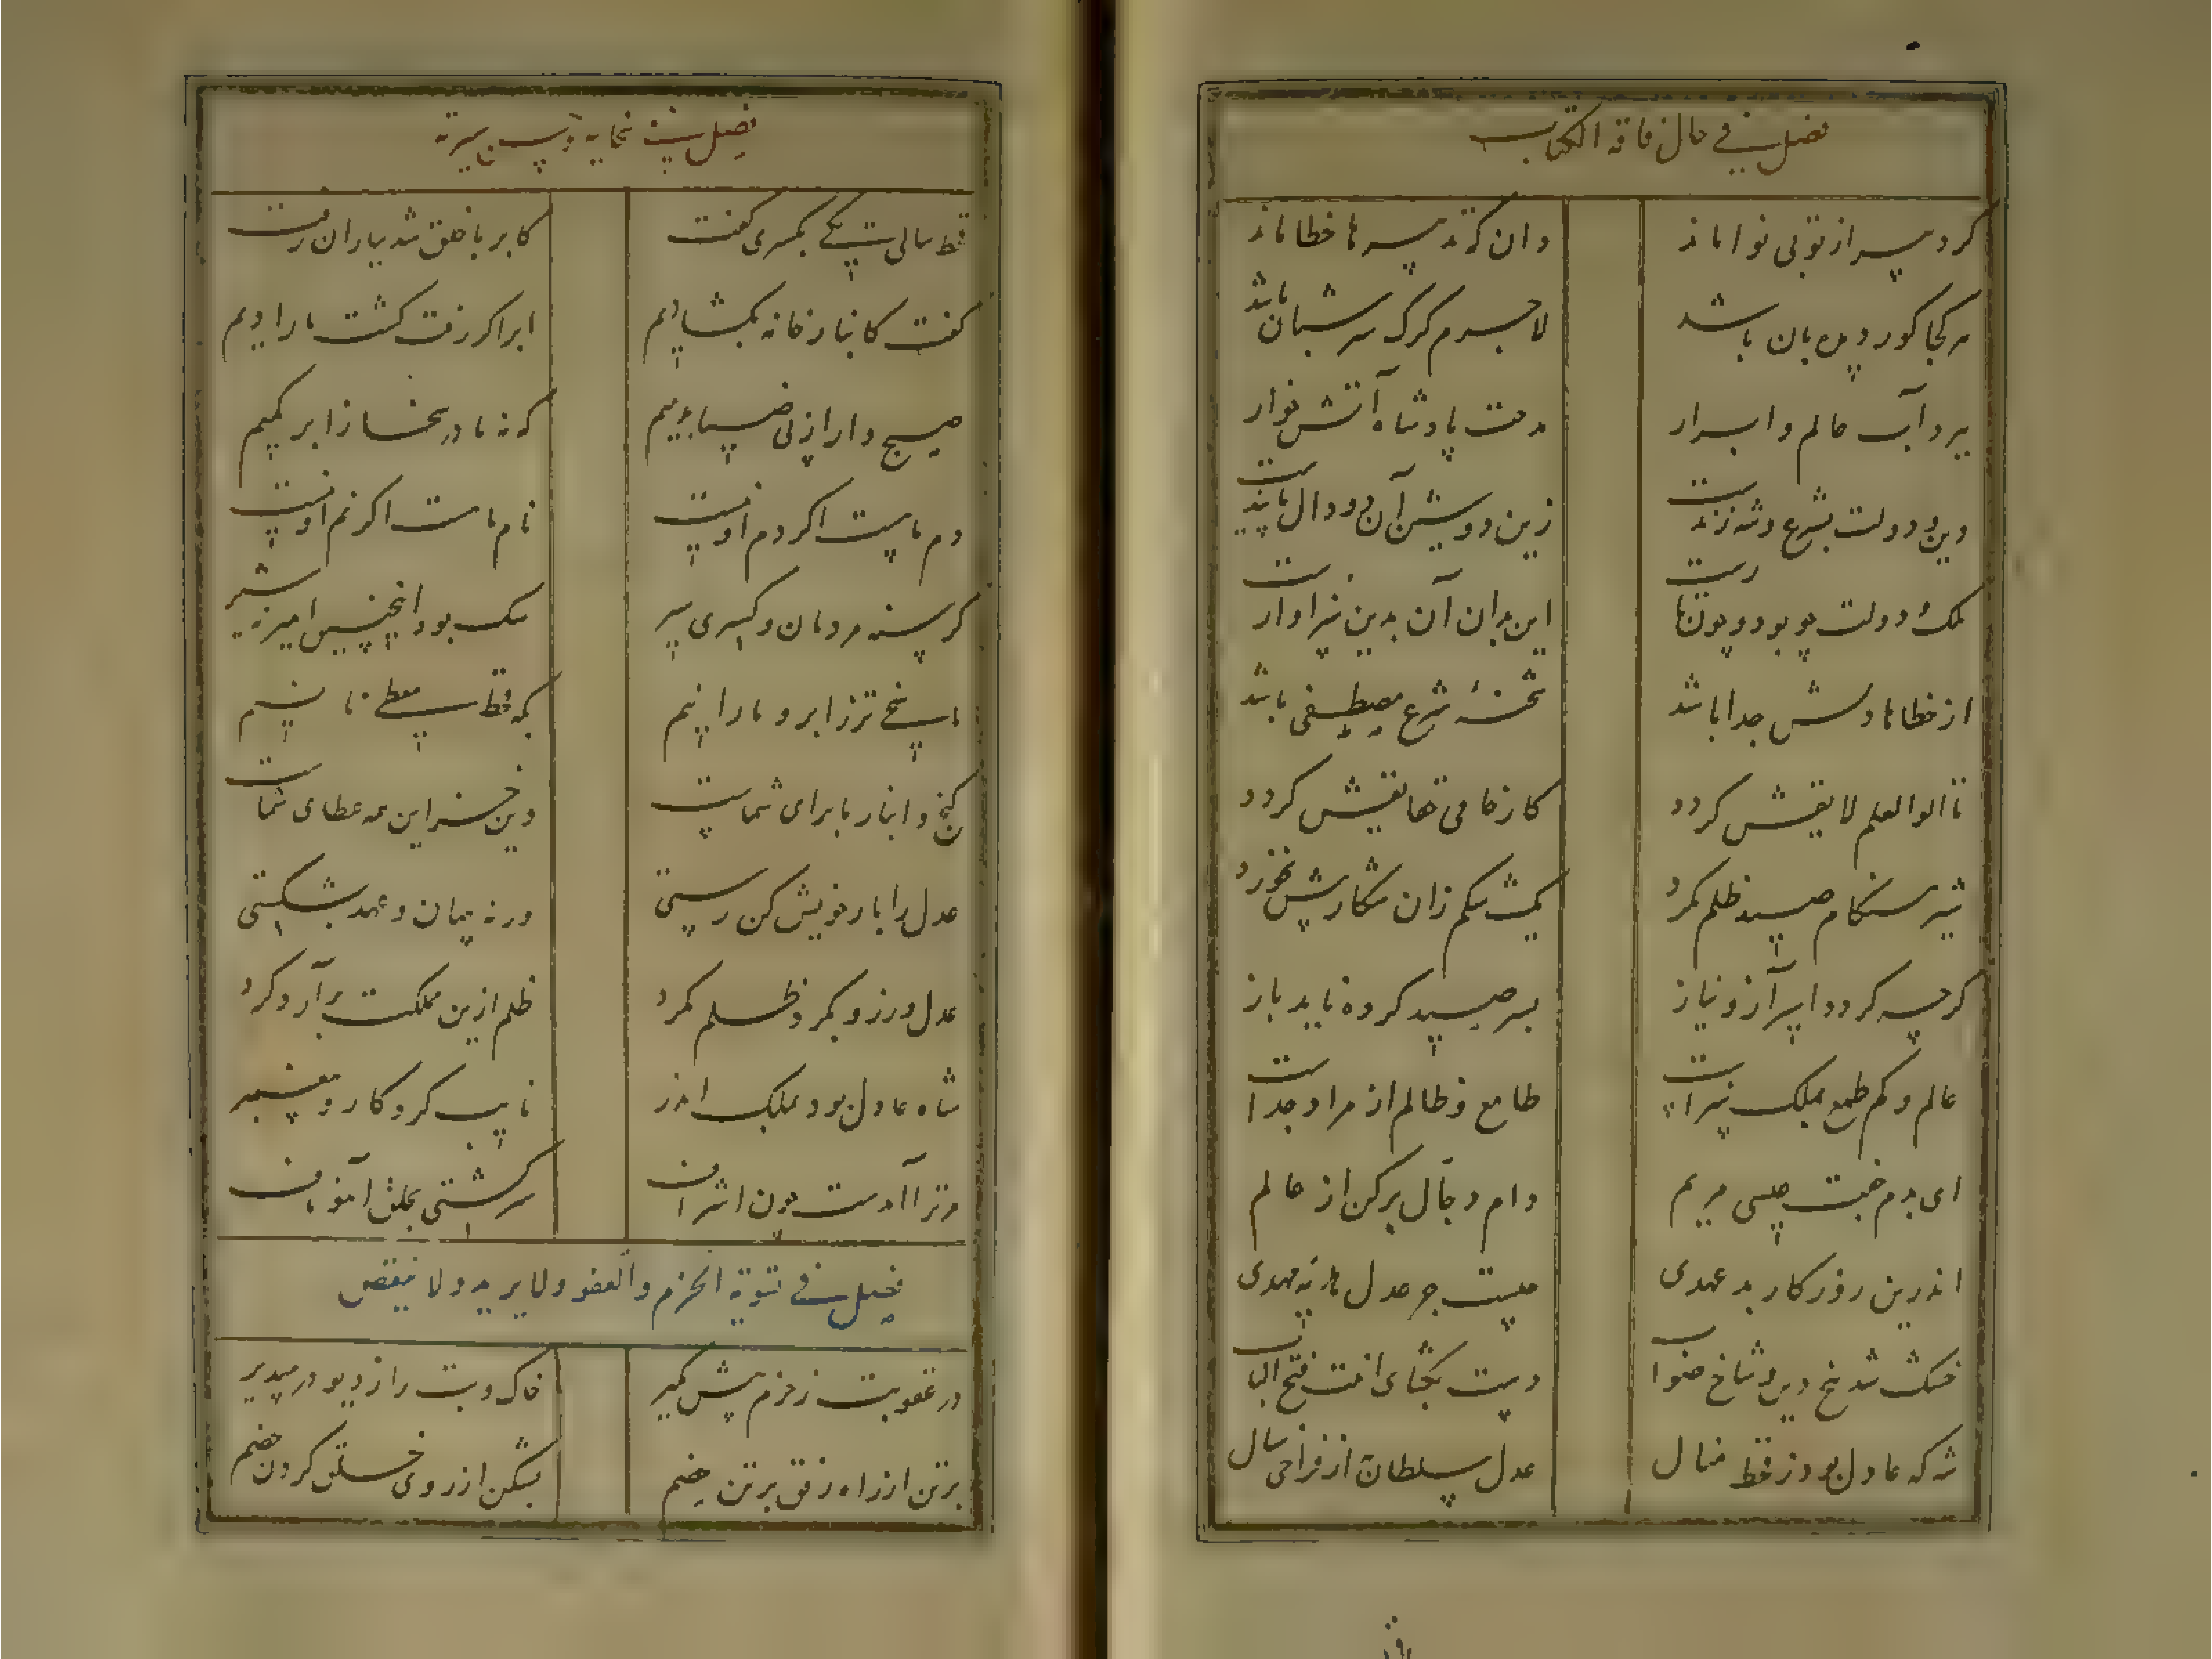 فصل فی حال فاقة الکتاب
کرد پسر از توبی نوا ماند وان کزتد پسر ها خطا ماند
هر کجا کور دیده بان باشد لاجرم کرک سر شبان باشد
ببرد آب عالم و ابرار مدحت پادشاه آتش خوار
دین و دولت بشرع و شه زندست زین دو شین آن دو دال پایندست
ملک و دولت چو بود و چون تارست این بدان آن بدین سزاوارست
از خطاها دلش جدا باشد شحنهٔ شرع مصطفی باشد
تا اولوا العلم لایقش کردد کار فامی تھایقش کردد
شیر هنکام صید ظلم نکرد یک شکم زان شکار بیش نخورد
کرچه کردد اسیر آز و نیاز بسر صید کرده ناید باز
عالم و کم طمع بملک سزاست طامع و ظالم از مراد جداست
ای بدم جفت عیسی مریم دام دجال برکن از عالم
اندرین روزکار بد عهدی چیست جز عدل هدیه مهدی
خشک شد بیخ دین و شاخ صواب دست بکشای افتتح الباب
شه که عادل بود ز قحط منال عدل سلطان به از فراخی سال
قحط سالی یکی بکسری کفت کابر با خلق شد بباران زفت
کفت کانبار خانه بکشاییم ابر اکر زفت کشت ما رادیم
صبح وار از پی ضیا بزییم که نه ما در سخا ز ابر کمیم
دم ما هست اکر دم او نیست نام ما هست اکر نم او نیست
کرسنه مردمان و کسری سیر سک بود اینچنین امیر نه شیر
ما سخی تر ز ابر و بارانیم که قحط معطی نانیم
کنج و انبار ما برای شماست وین خزاین همه عطای شماست
عدل را یار خویش کن رستی ورنه پیمان و عهد بشکستی
عدل ورز و بکرد ظلم مکرد ظلم ازین مملکت برآرد کرد
شاه عادل بود بملک اندر نایب کردکار و پیغمبر
سرکشتی بخلق آموزان
فصل فی تقویة الحزم والعفو ولا یرید ولا ینقص
در عقوبت ز حزم پیش مکیر خاک و بت را ز دیو در مپذیر
بر تن از راه رفق بر تن خصم بشکن از روی خلق کردن خصم